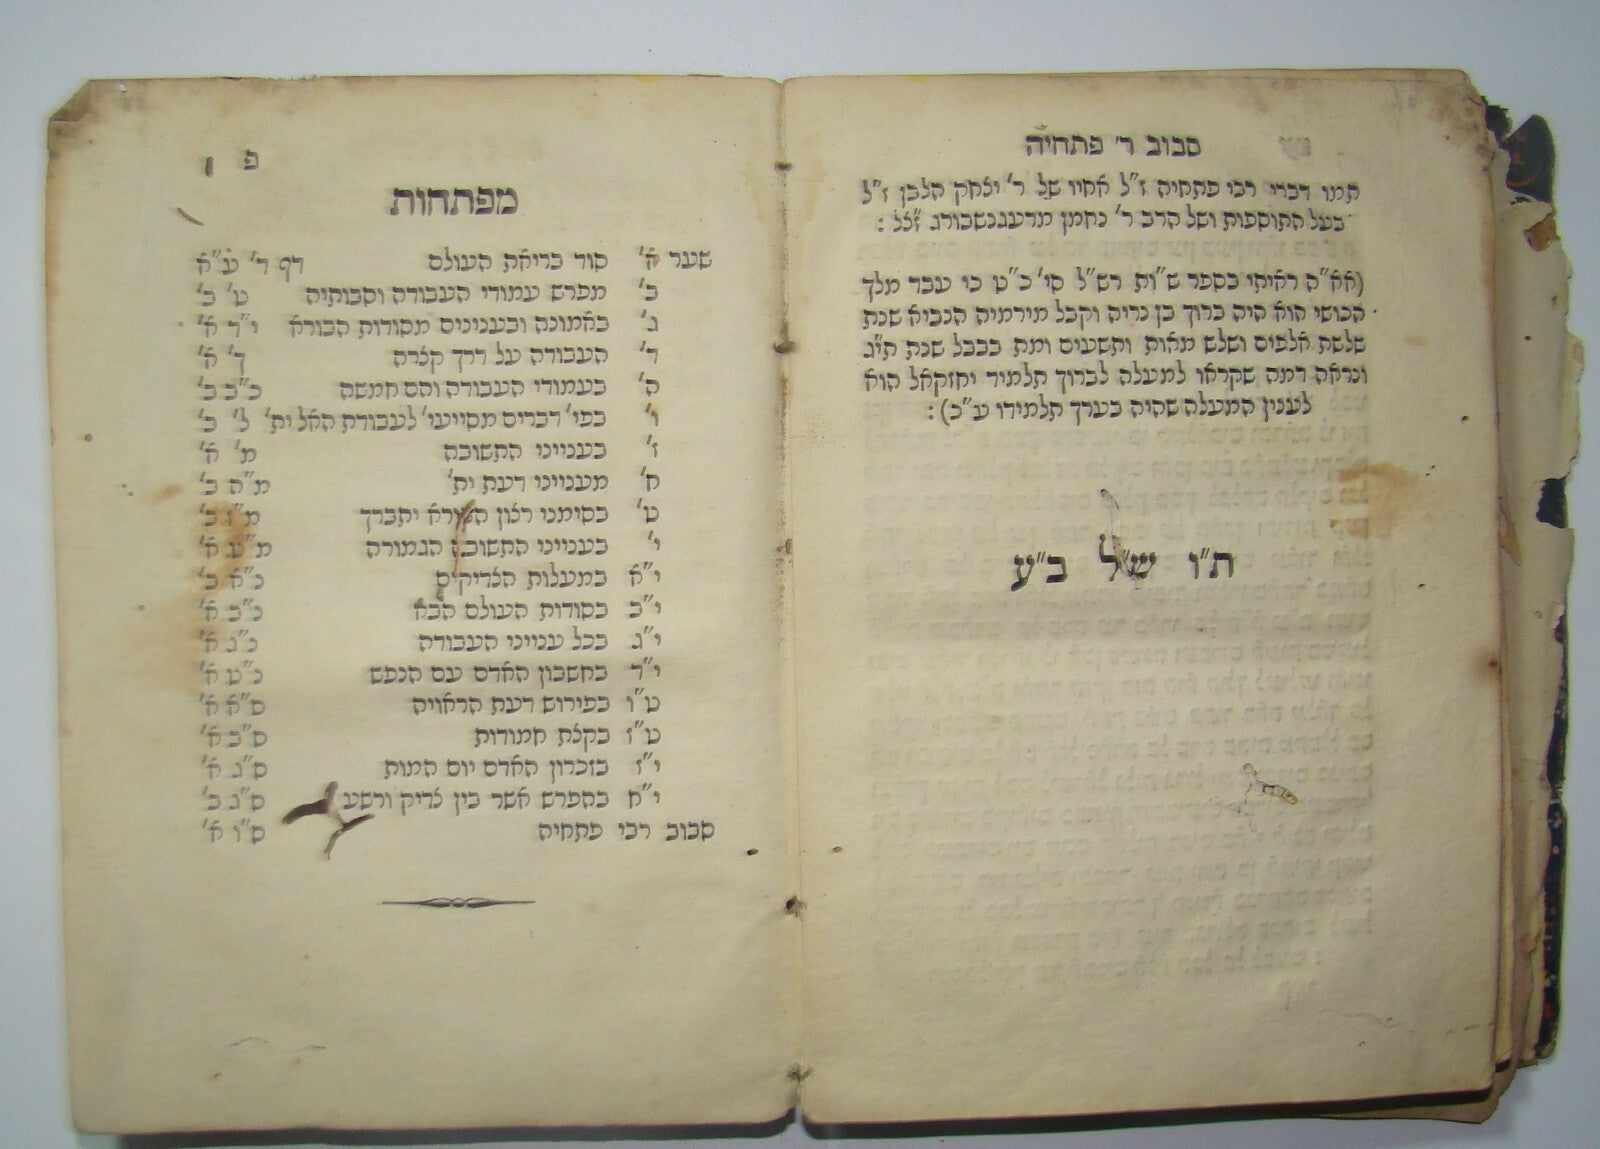 סבוב ר׳ פתחיה
תמו דברי רבי פתחיה ז״ל אחיו של ר׳ יצחק הלבן ז״ל
בעל התוספות ושל הרב ר׳ נחמן מרעגנשבורג זצ״ל :
(אא״ה ראיתי בספר ש״ות רש״ל סי׳ כ״ט כי עבד מלך
הכושי הוא היה ברוך בן נריה וקבל מירמיה הנביא שנת
שלשת אלפים ושלש מאות ותשעים ומת בבבל שנת תי״ג
ונראה דמה שקראו למעלה לברוך תלמיד יחזקאל הוא
לענין המעלה שהיה בערך תלמידו ע״כ) :
ת״ו ש״ל ב״ע
פ
מפתחות
שער א׳ סוד בריאת העולם דף ד׳ ע״א
ב׳ מפרש עמודי העבודה וסבותיה ט׳ ב׳
ג׳ באמונה ובענינים מסודות הבורא י״ד א׳
ד׳ העבודה על דרך קצרה ך׳ א׳
ה׳ בעמודי העבודה והם חמשה כ״ב ב׳
ו׳ בפי׳ דברים מסייעי׳ לעבודת האל ית׳ ל׳ ב׳
ז׳ בענייני התשובה מ׳ א׳
ח׳ מענייני דעת ית׳ מ״ה ב׳
ט׳ בסימני רצון הבורא יתברך מ״ז ב׳
י׳ בענייני התשובה הגמורה מ״ט א׳
י״א במעלות הצדיקים נ״א ב׳
י״ב בסודות העולם הבא נ״ב א׳
י״ג בכל ענייני העבודה נ״ג א׳
י״ד בחשבון האדם עם הנפש נ״ט א׳
ט״ו בפירוש דעת הראויה ס״א א׳
ט״ז בקצת חמודות ס״ב א׳
י״ז בזכרון האדם יום המות ס״ג א׳
י״ח בהפרש אשר בין צדיק ורשע ס״ג ב׳
סבוב רבי פתחיה ס״ו א׳